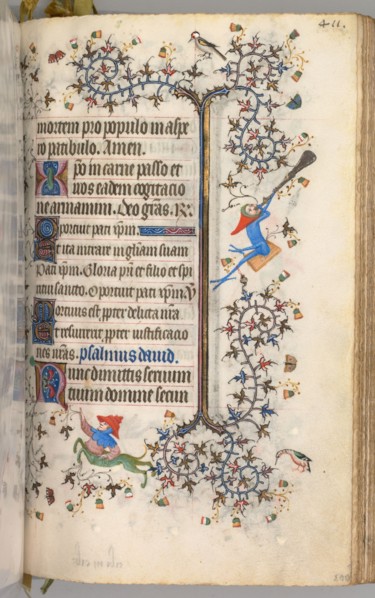 mortem pro populo in aspe
ro patibulo. Amen.
Xpo in carne passo et
uos eadem cogitacio
ne armamini. Deo gras. R.
Oportuit pati xpm.
Et ita intrare in gliam suam
Pati xpm. Gloria pri et filio et spi
ritui sancto. Oportuit pati xpm. V
Mortuus est ppter delicta nra
Et resurrexit ppter iustificacio
nes nras. psalmus dauid.
Nunc dimittis seruum
tuum domine secun